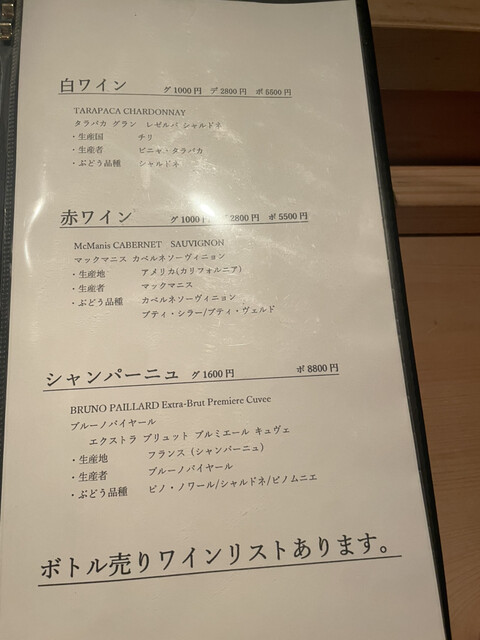 白ワイン　グ1000円　デ2800円　ボ5500円
TARAPACA CHARDONNAY
タラパカ グラン　レゼルバ シャルドネ
・生産国　チリ
・生産者　ビニャ・タラパカ
・ぶどう品種　シャルドネ
赤ワイン　グ1000円　デ2800円　ボ5500円
McManis CABERNET　SAUVIGNON
マックマニス カベルネソーヴィニョン
・生産地　アメリカ(カリフォルニア)
・生産者　マックマニス
・ぶどう品種　カベルネソーヴィニョン
プティ・シラー/プティ・ヴェルド
シャンパーニュ　グ1600円　ボ8800円
BRUNO PAILLARD Extra-Brut Premiere Cuvee
ブルーノパイヤール
エクストラ ブリュット プルミエール キュヴェ
・生産地　フランス（シャンパーニュ）
・生産者　ブルーノパイヤール
・ぶどう品種　ピノ・ノワール/シャルドネ/ピノムニエ
ボトル売りワインリストあります。